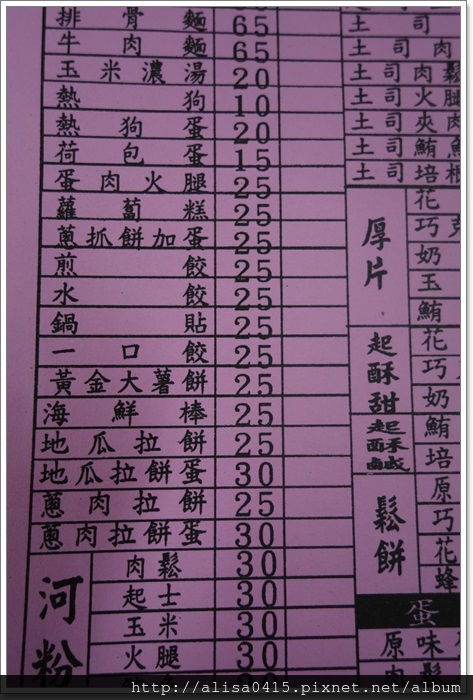 排骨麵 65
牛肉麵 65
玉米濃湯 20
熱狗 10
熱狗蛋 20
荷包蛋 15
蛋肉火腿 25
蘿蔔糕 25
蔥抓餅加蛋 25
煎餃 25
水餃 25
鍋貼 25
一口餃 25
黃金大薯餅 25
海鮮棒 25
地瓜拉餅 25
地瓜拉餅蛋 30
蔥肉拉餅 25
蔥肉拉餅蛋 30
河粉
肉鬆 30
起士 30
玉米 30
火腿 30
土司
土司肉
土司肉鬆
土司火腿
土司夾肉
土司鮪
土司培根
厚片
花
巧克
奶
玉
鮪
起酥甜
花
巧
奶
起酥鹹
鮪
培
鬆餅
原
巧
花
蜂
蛋
原味
肉鬆
http://alisa0415.pixnet.net/album